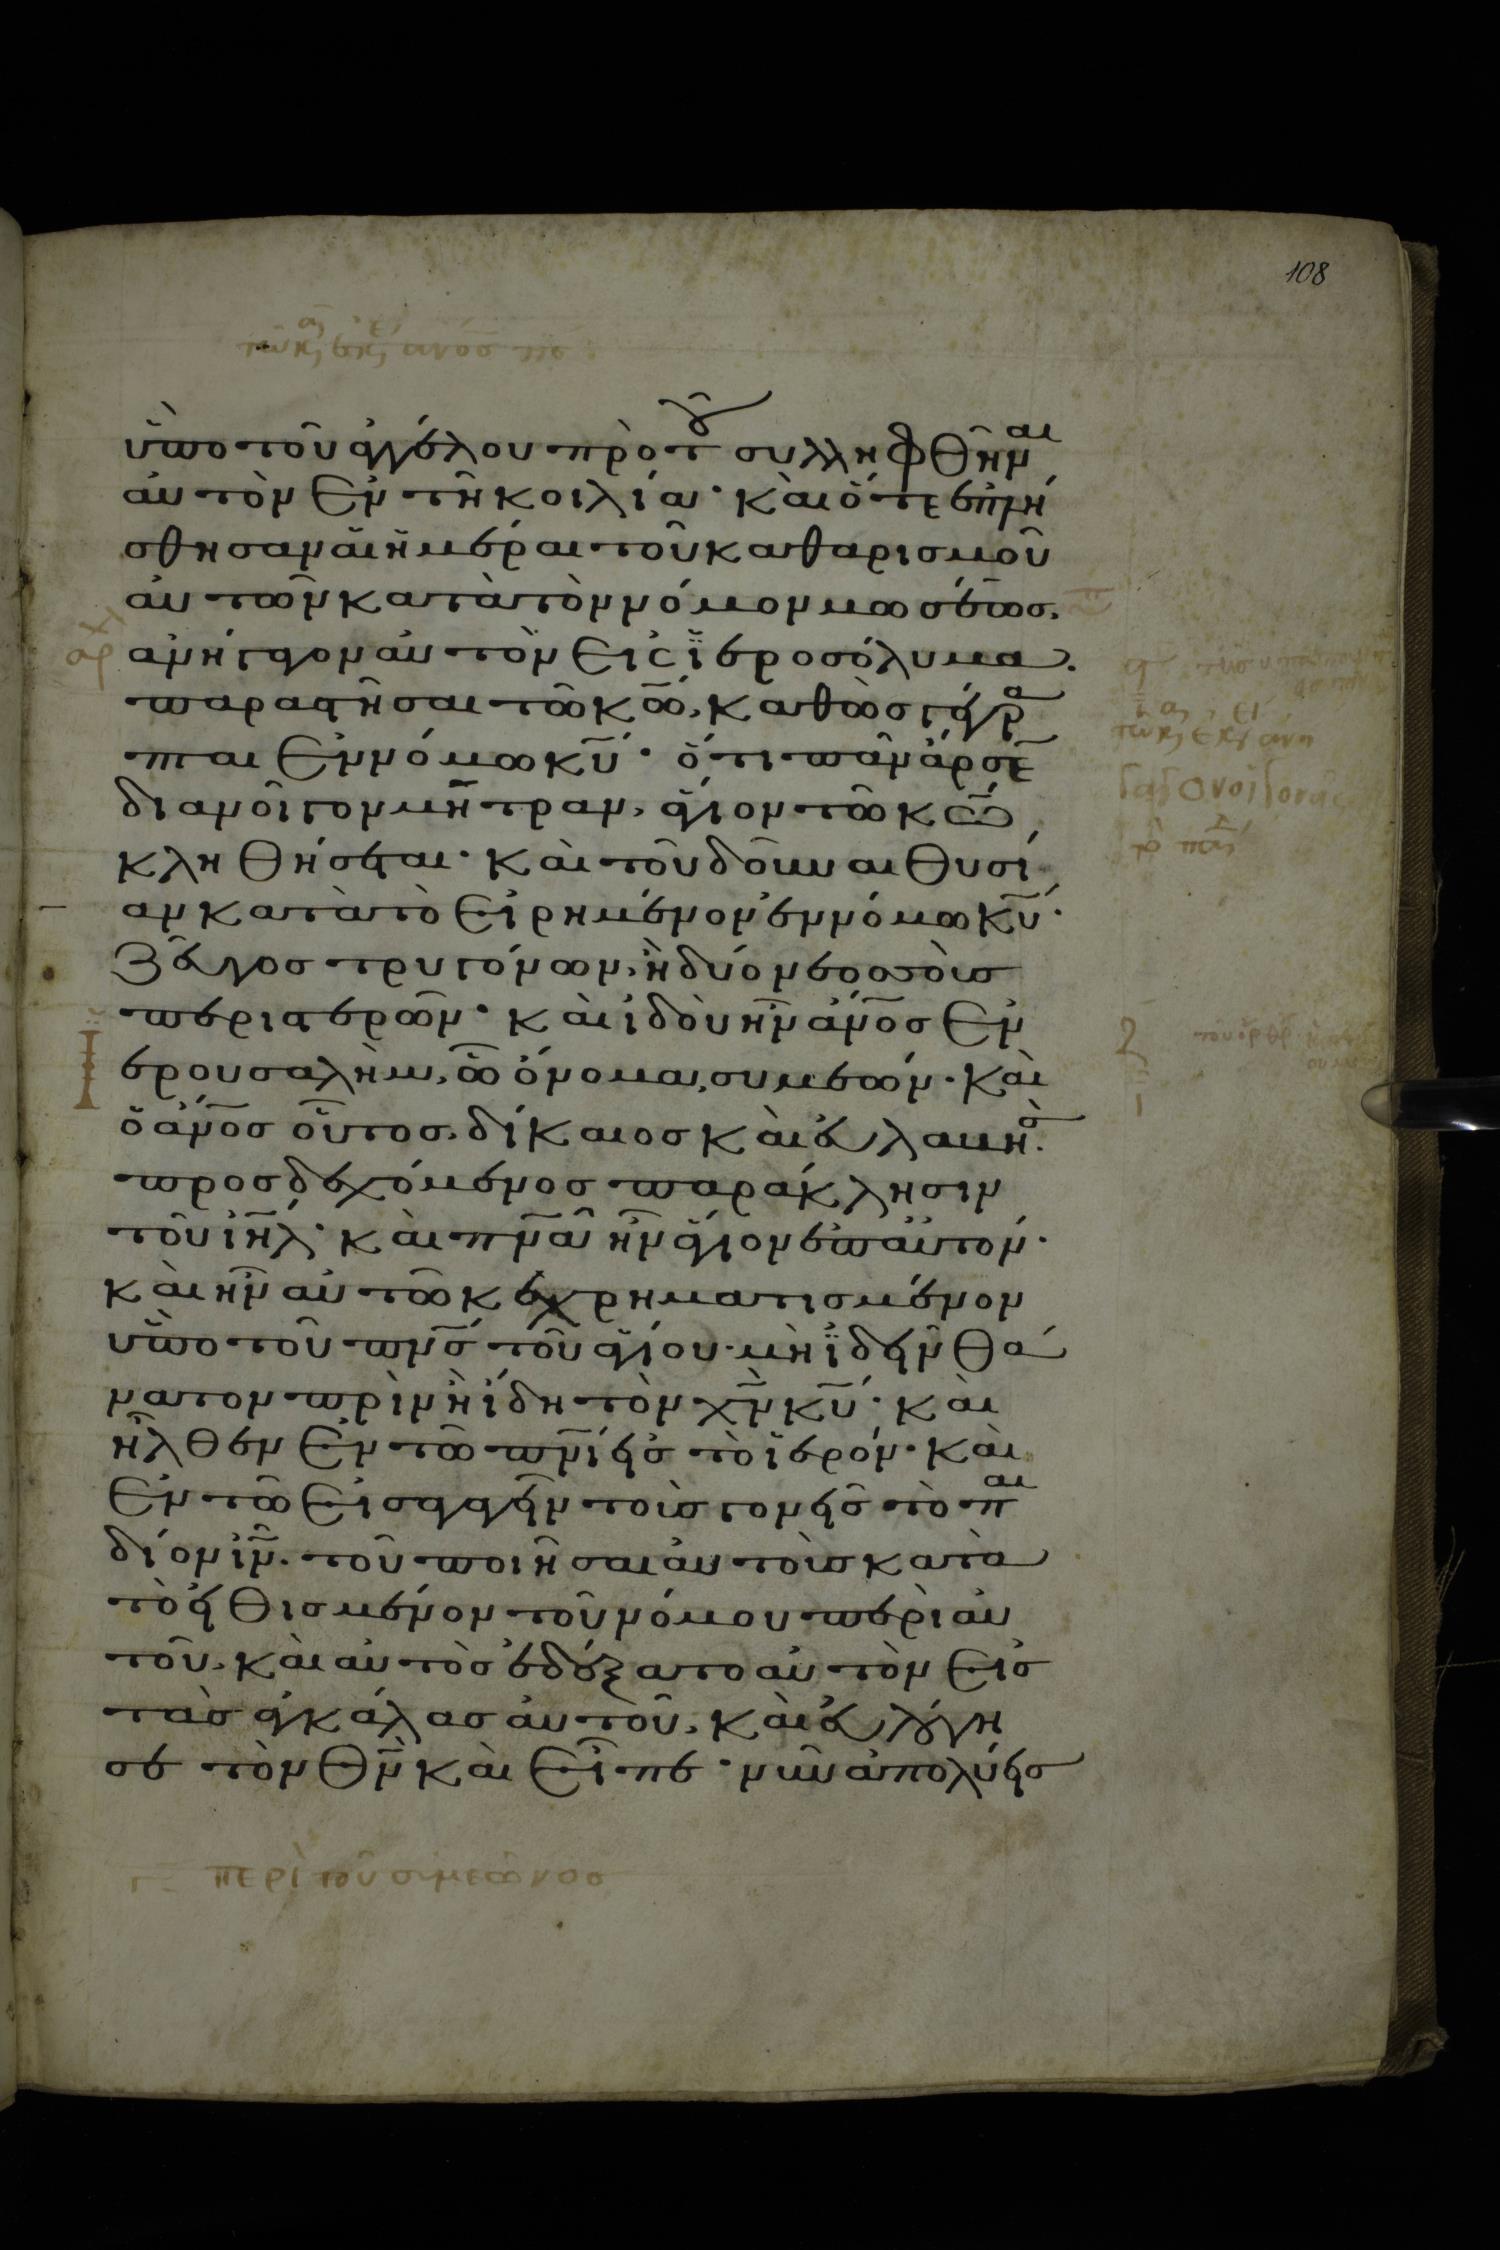 108
ὑπὸ τοῦ ἀγγέλου πρὸ τοῦ συλληφθῆναι
αὐτὸν ἐν τῆ κοιλία· καὶ ὅτε ἐπλή
σθησαν αἱ ἡμέραι τοῦ καθαρισμοῦ
αὐτῶν κατὰ τὸν νόμον μωσέως,
ἀνήγαγον αὐτὸν εἰς ἱεροσόλυμα.
παραστῆσαι τῶ κω, καθὼς γέγρα
πται ἐν νόμω κυ· ὅτι πᾶν ἄρσεν
διανοῖγον μήτραν, ἅγιον τῶ κω
κληθήσεται· καὶ τοῦ δοῦναι θυσί
αν κατὰ τὸ εἰρημένον ἐν νόμω κυ·
ζεῦγος τρυγόνων, ἢ δύο νεοσσοὺς
περιστερῶν· καὶ ἰδοὺ ἦν ἀνος ἐν
ἱερουσαλὴμ, ὧ ὄνομα, συμεών· καὶ
ὁ ἀνος οὗτος, δίκαιος καὶ εὐλαβὴς.
προσδεχόμενος παράκλησιν
τοῦ ιηλ· καὶ πνα ἦν ἅγιον ἐπ αὐτόν·
καὶ ἦν αὐτῶ κεχρηματισμένον
ὑπὸ τοῦ πνς τοῦ ἁγίου· μὴ ἰδεῖν θά
νατον πρὶν ἢ ἴδη τὸν χν κυ· καὶ
ἦλθεν ἐν τῶ πνι εἰς τὸ ἱερόν· καὶ
ἐν τῶ εἰσαγαγεῖν τοὺς γονεῖς τὸ παι
δίον ιν. τοῦ ποιῆσαι αὐτοὺς κατὰ
τὸ εἰθισμένον τοῦ νόμου περὶ αὐ
τοῦ, καὶ αὐτὸς ἐδέξατο αὐτὸν εἰς
τὰς ἀγκάλας αὐτοῦ, καὶ εὐλόγη
σε τὸν θν καὶ εἶπε· νῦν ἀπολύεις
περὶ τοῦ συμεῶνος